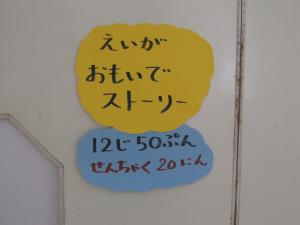 えいが
おもいで
ストーリー
12じ50ぷん
せんちゃく20にん